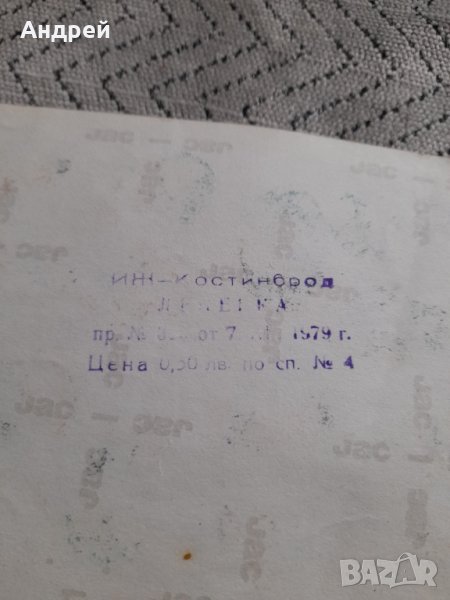 Андрей
ИЖ-Костинброд
пр. № от 7. 1979 г.
Цена 0,50 лв. по сп. № 4
JSC - JSC
BAZAR